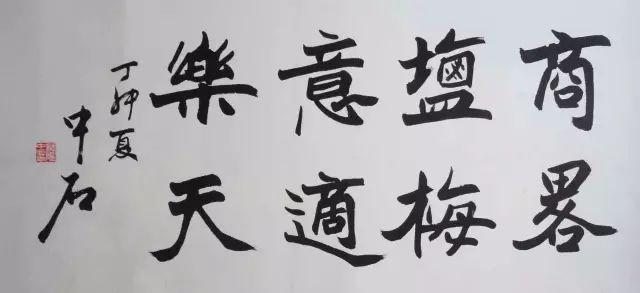 商畧
塩梅
意適
樂天
丁卯夏
中石